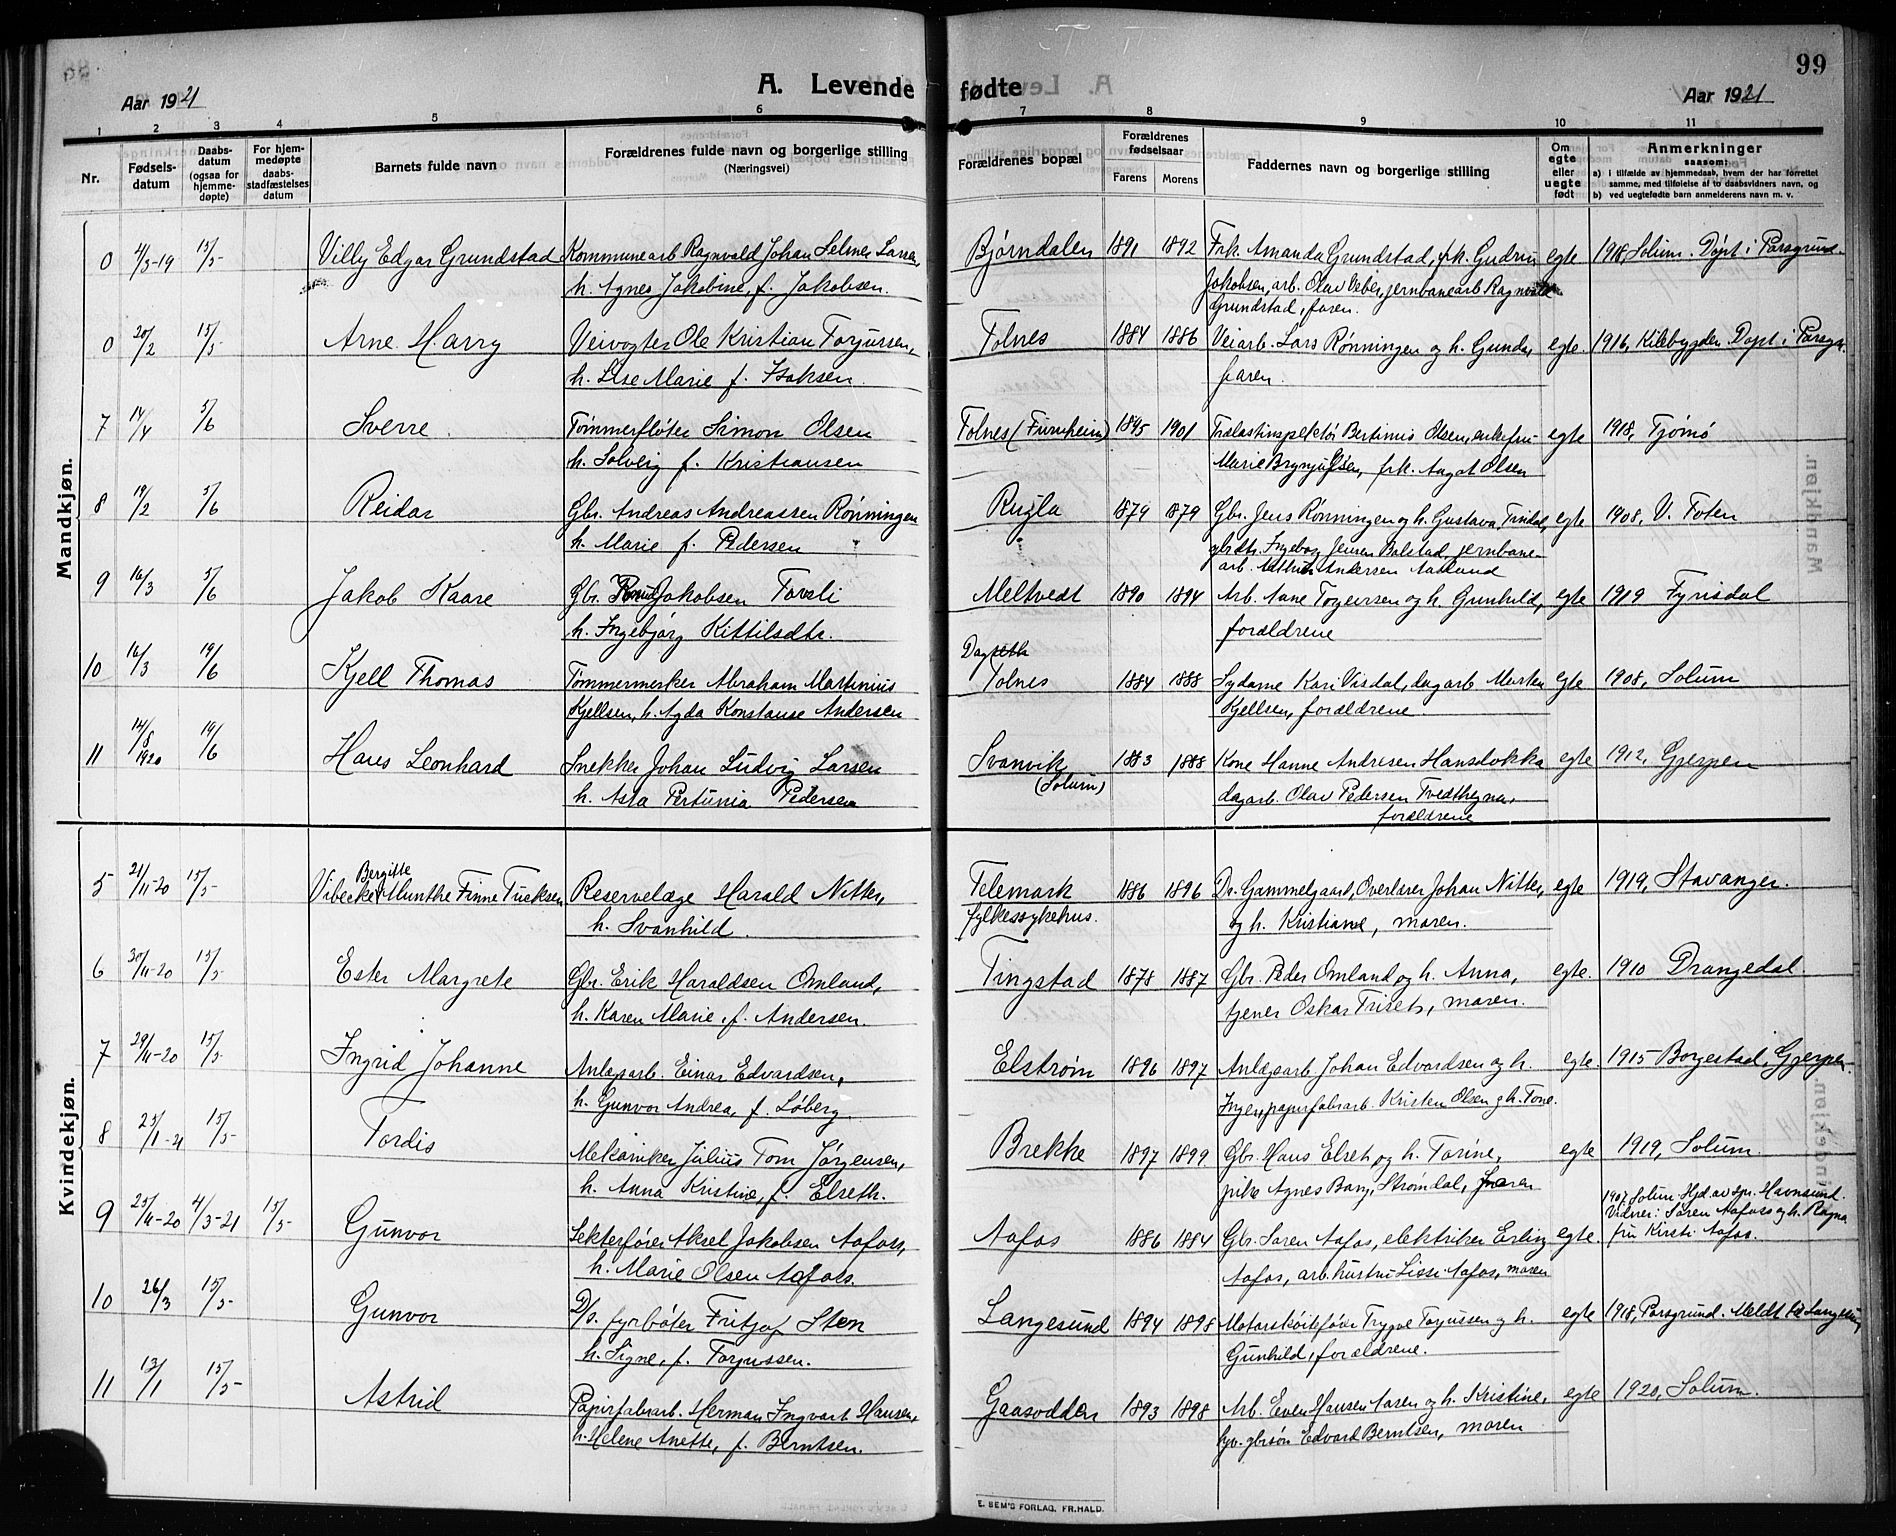 99
A. Levende fødte
Aar 1921
Aar 1921
1 2 3 4 5 6 7 8 9 10 11
Nr.
Fødsels-datum
Daabs-datum (ogsaa for hjemme-døpte)
For hjem-medøpte daabs-stadfæstelses datum
Barnets fulde navn
Forældrenes fulde navn og borgerlige stilling
(Næringsvei)
Forældrenes bopæl
Forældrenes fødselsaar
Farens Morens
Faddernes navn og borgerlige stilling
Om egte eller uegte født
Anmerkninger
saasom:
a) i tilfælde av hjemmedaab, hvem der har forrettet samme, med tilføielse af to daabsvidners navn, og
b) ved uegtefødte barn anmelderens navn m. v.
Mandkjøn.
0 4/3-19 15/5 Villy Edgar Grundstad Kommunearb Ragnvald Johan Selmer Larsen, Bjørndalen 1891 1892 Frk. Amanda Grundstad, frk. Gudrun egte 1918, Solum. Døpt i Porsgrund.
h. Agnes Jakobine, f. Jakobsen. Jakobsen, arb. Olav Weber, jernbanearb Ragnvald
Grundstad, faren.
0 20/2 15/5 Arne Harry Veivogter Ole Kristian Torjussen, Tolnes 1884 1886 Veiarb. Lars Rønningen og h. Gunda, egte. 1916, Kilebygden Døpt i Porsgr.
h. Lise Marie f. Isaksen. faren.
7 14/4 5/6 Sverre Tømmerfløter Simon Olsen Tolnes (Furuheim) 1895 1901 Trælastinspektør Bertinius Olsen, enkefru egte 1918, Tjømø
h. Solveig f. Kristiansen Marie Brynjulfsen, frk. Aagot Olsen
8 19/2 5/6 Reidar Gbr. Andreas Andreassen Rønningen Rugla 1879 1879 Gbr. Jens Rønningen og h. Gustava, Trisdal, egte 1908, V. Toten
h. Marie f. Pedersen gbrdtr. Ingeborg Jensen Bolstad, jernbane-
arb. Arthur Andersen Aaslund
9 16/3 5/6 Jakob Kaare Gbr. Knut Jakobsen Tovsli Meltvedt 1890 1894 Arb. Aane Torgersen og h. Gunhild, egte 1919 Fyrisdal
h. Ingebjørg Kittilsdtr. forældrene
10 16/3 19/6 Kjell Thomas Tømmermerker Abraham Martinius Tolnes 1884 1888 Sydame Kari Visdal, dagarb Morten egte 1908, Solum
Kjellsen, h. Agda Konstanse Andersen Kjellsen, forældrene.
11 14/8 1920 19/6 Hans Leonhard Snekker Johan Ludvig Larsen Svanvik 1883 1888 Kone Hanne Andresen Hansdokka egte 1912, Gjerpen
h. Asta Pertunia Pedersen (Solum) dagarb. Olav Pedersen Tvedthegna,
forældrene
Kvindekjøn.
5 21/11-20 15/5 Vibecke Bergitte Munthe Finne Tucksen Reservelæge Harald Nitter, Telemark 1886 1896 Dr. Gammelgaard, Overlærer Johan Nitter, egte 1919, Stavanger.
h. Svanhild. fylkessykehus. og h. Kristiane, moren.
6 30/11-20 15/5 Ester Margrete Gbr. Erik Haraldsen Omland, Tingstad 1878 1887 Gbr. Peder Omland og h. Anna, egte. 1910 Drangedal
h. Karen Marie, f. Andersen. tjener Oskar Triset, moren.
7 29/11-20 15/5 Ingrid Johanne Anlægsarb. Einar Edvardsen, Elstrøm 1896 1897 Anlægsarb Johan Edvardsen og h. egte. 1915 Borgestad, Gjerpen.
h. Gunvor Andrea, f. Løberg. Inger, papirfabarb. Kristen Olsen og h. Tone.
8 25/1-21 15/5 Tordis Mekaniker Julius Tom Jørgensen, Brekke 1897 1899 Gbr. Hans Elset, og h. Torine, egte 1919, Solum.
h. Anna Kristine, f. Elseth. pike Agnes Bang, Strømdal, faren
9 25/11-20 4/3-21 15/5 Gunvor Lekterfører Aksel Jakobsen Aafoss, Aafos 1886 1884 Gbr. Søren Aafos, elektriker Erling egte. 1907 Solum. Hjd. av spr. Havnsund.
h. Marie Olsen Aafoss. Aafos, arb.hustru Lissi Aafos, moren Vidner: Søren Aafoss og h. Ragna
fru Kirsti Aafos.
10 26/3 15/5 Gunvor D/s. fyrbøter Fritjof Sten Langesund 1894 1898 Motorskøitefører Trygve Torjussen og h. egte 1918, Porsgrund. Meldt til Langesund
h. Signe, f. Torjussen. Gunhild, forældrene.
11 13/1 15/5 Astrid Papirfabarb. Herman Ingvart Hansen, Gaasodden 1893 1898 Arb. Even Hansen Aasen og h. Kristine, egte 1920, Solum.
h. Helene Anette, f. Berntsen. gbrsøn Edvard Berntsen, moren
E. SEM'S FORLAG, FR.HALD.